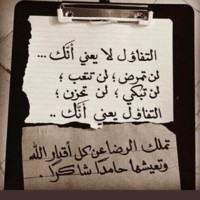 التفاؤل لا يعني أنَّك ...
لن تمرض ؛ لن تتعب ؛
لن تبكي ؛ لن تحزن ؛
التفاؤل يعني أنَّك ..
تملك الرضا عن كل أقدار الله
وتعيشها حامدًا شاكرًا .